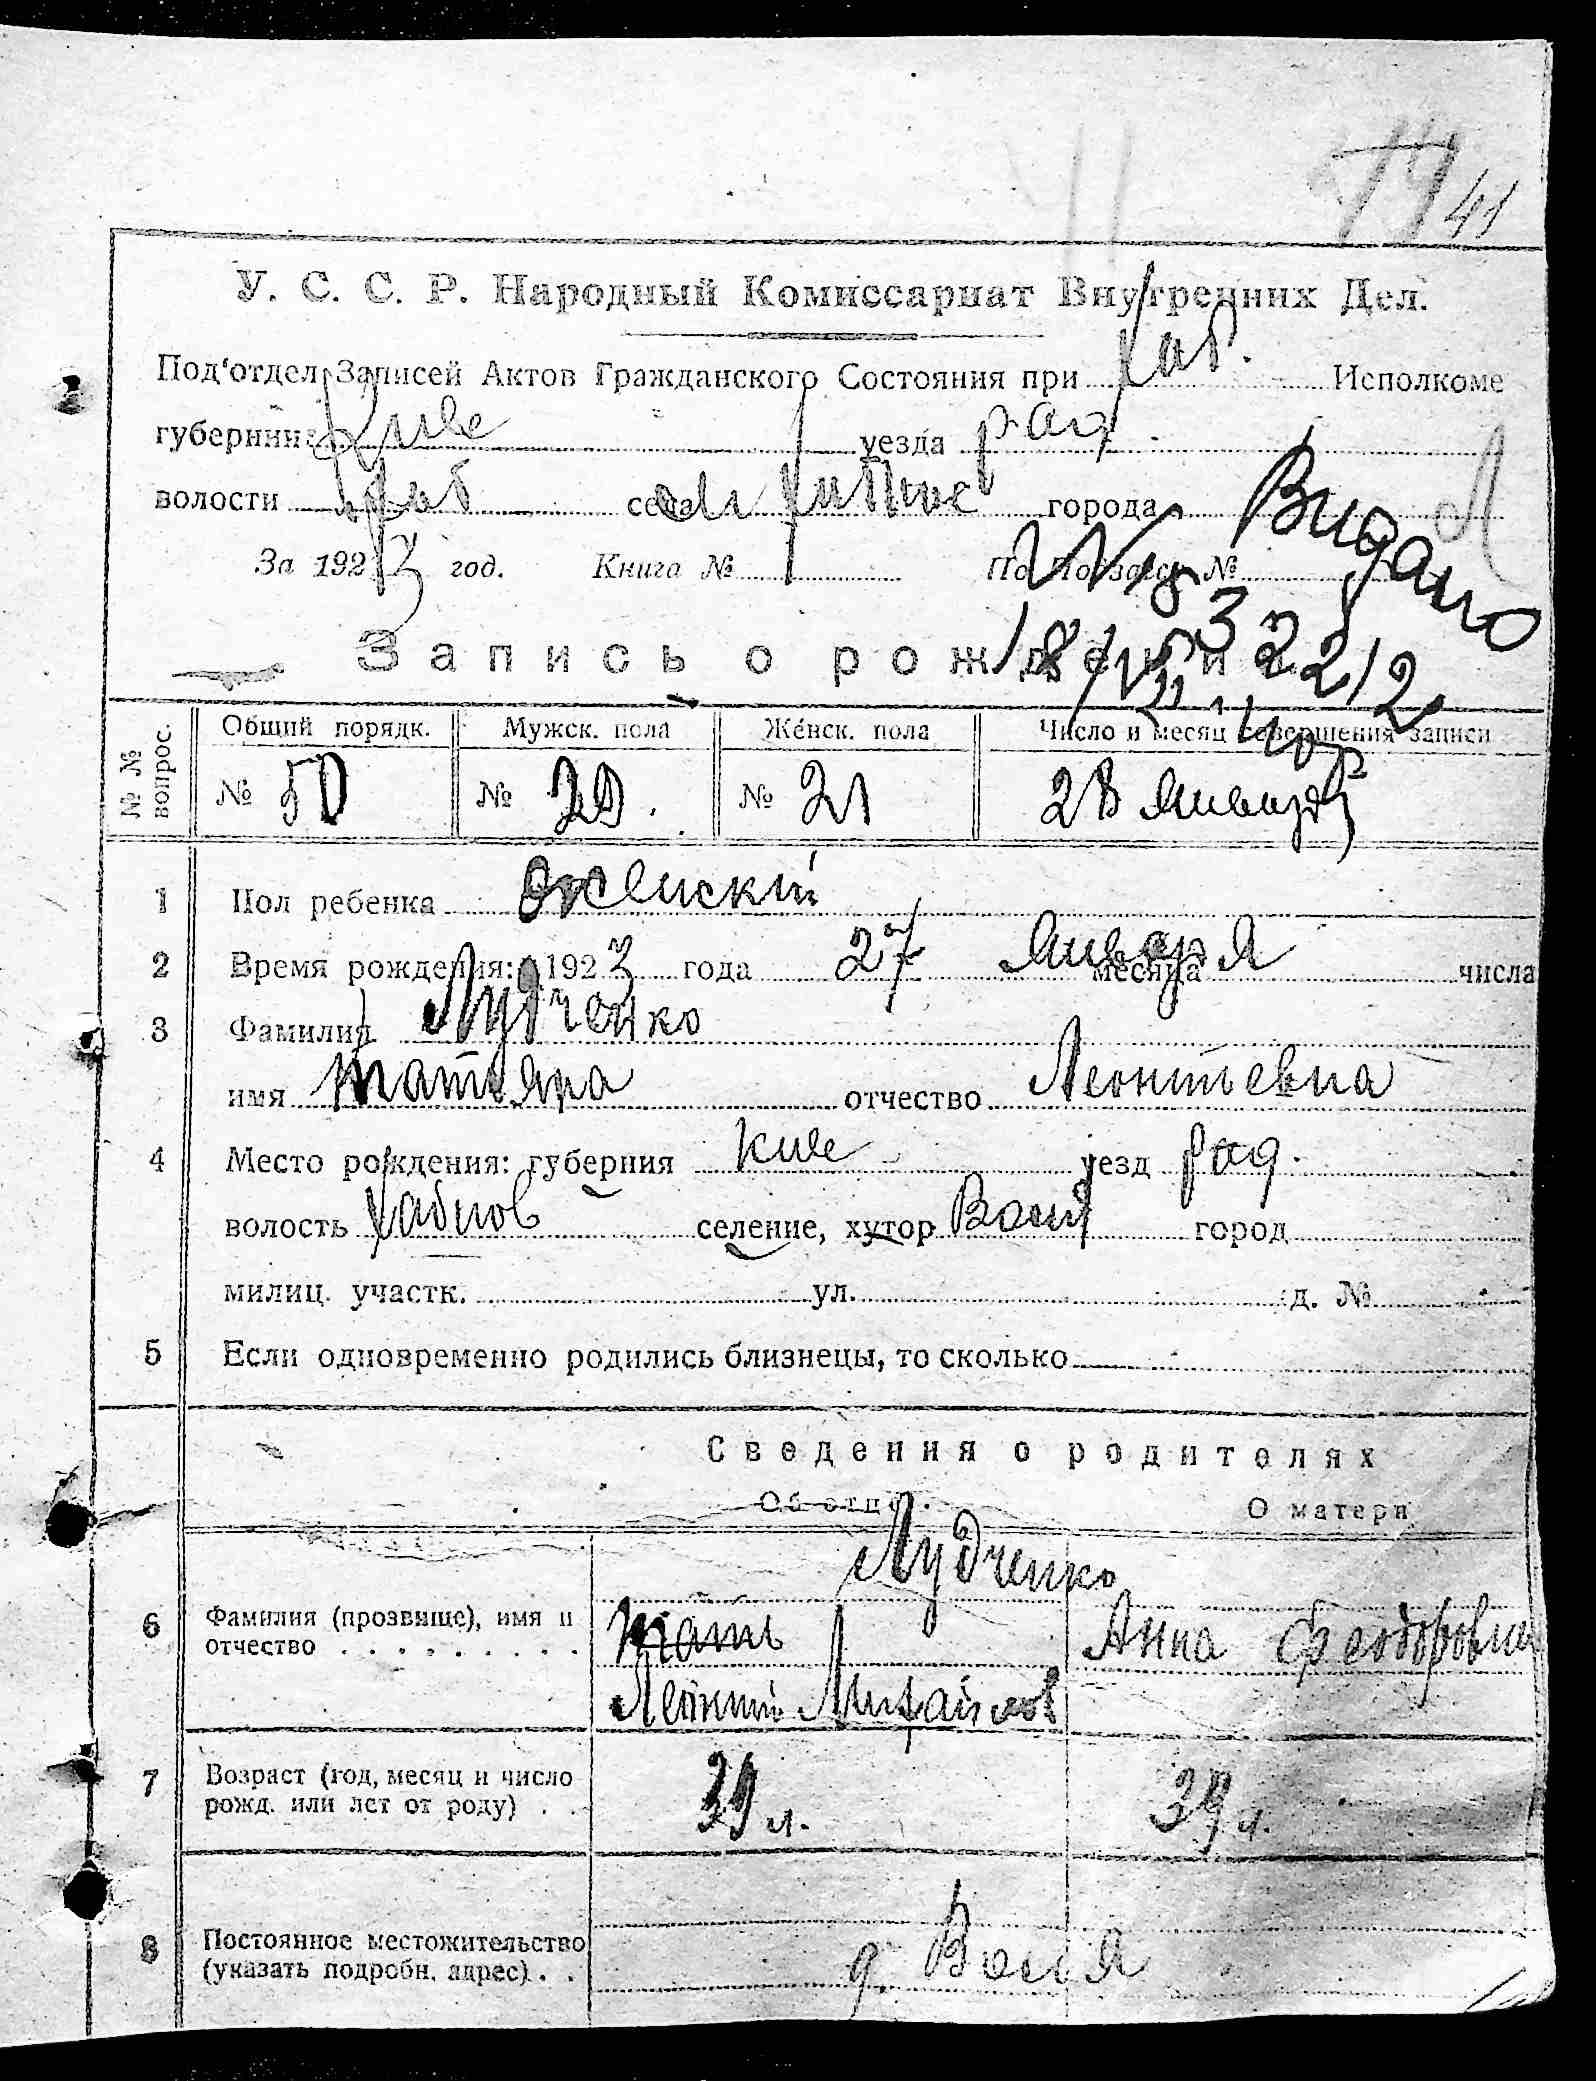 41
У. С. С. Р. Народный Комиссариат Внутренних Дел.
Под'отдел Записей Актов Гражданского Состояния при Хаб. Исполкоме
губернии Киев уезда рад
волости Хаб села города
За 1923 год. Книга № По Подзагсу №
Видано
Запись о рождении
№№ вопрос. Общий порядк. Мужск. пола Женск. пола Число и месяц совершения записи
№ 50 № 29. № 21 28 Января
1 Пол ребенка женский
2 Время рождения: 1923 года 27 Января месяца числа
3 Фамилия Лудченко
имя Татьяна отчество Леонтьевна
4 Место рождения: губерния Кие уезд рад.
волость Хабнов селение, хутор город
милиц. участк. ул. д. №
5 Если одновременно родились близнецы, то сколько
Сведения о родителях
Об отце. О матери
Лудченко
6 Фамилия (прозвище), имя и Анна Феодоровна
отчество
Леонтий Михайлов
7 Возраст (год, месяц и число 39 л. 39 л.
рожд. или лет от роду)
8 Постоянное местожительство д. Воля
(указать подробн. адрес)